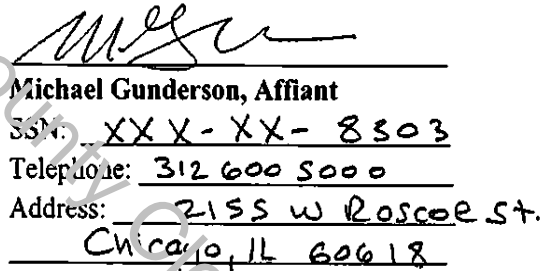 Michael Gunderson, Affiant
SSN: XXX-XX-8303
Telephone: 312 600 5000
Address: 2155 W Roscoe St.
Chicago, IL 60618